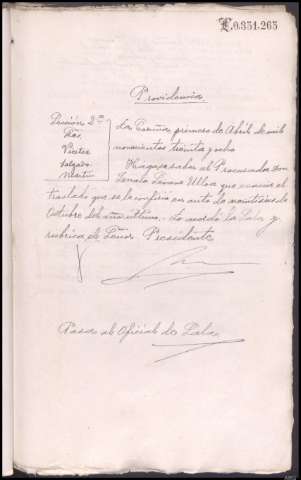 E.0.351.265
Providencia
Sección 2ª
Sres.
Vieitez
Salgado
Martin
La Coruña primero de Abril de mil
novecientos treinta y ocho
Hagase saber al Procurador don
Ulloa que evacue el
traslado que se le confirio en auto de veintiseis de
Octubre del año ultimo. Lo acordó la Sala y
rubrica el Señor Presidente
Pasa al Oficial de Sala